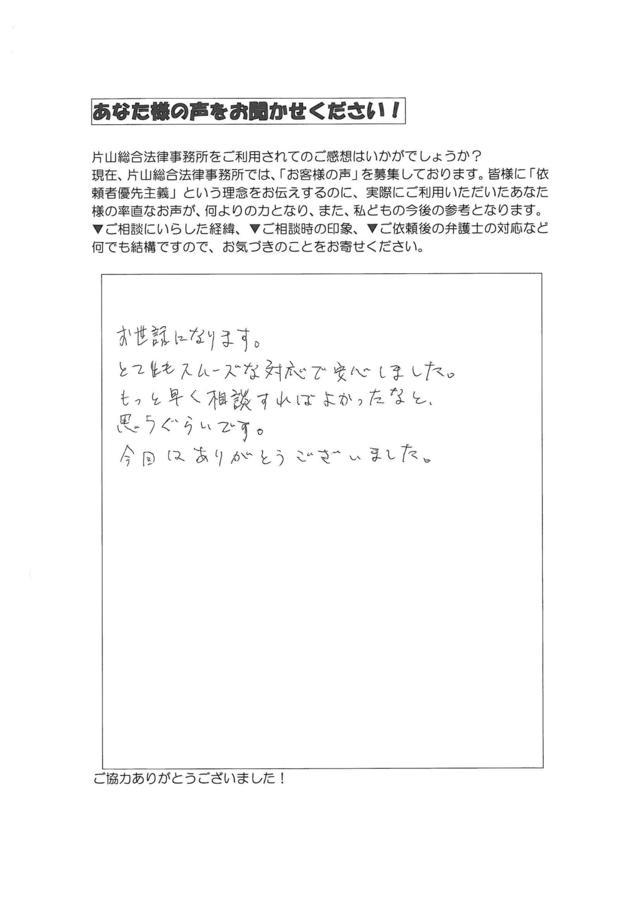 あなた様の声をお聞かせください！
片山総合法律事務所をご利用されてのご感想はいかがでしょうか？
現在、片山総合法律事務所では、「お客様の声」を募集しております。皆様に「依
頼者優先主義」という理念をお伝えするのに、実際にご利用いただいたあなた
様の率直なお声が、何よりの力となり、また、私どもの今後の参考となります。
▼ご相談にいらした経緯、▼ご相談時の印象、▼ご依頼後の弁護士の対応など
何でも結構ですので、お気づきのことをお寄せください。
お世話になります。
とてもスムーズな対応で安心しました。
もっと早く相談すればよかったなと、
思うぐらいです。
今回はありがとうございました。
ご協力ありがとうございました！